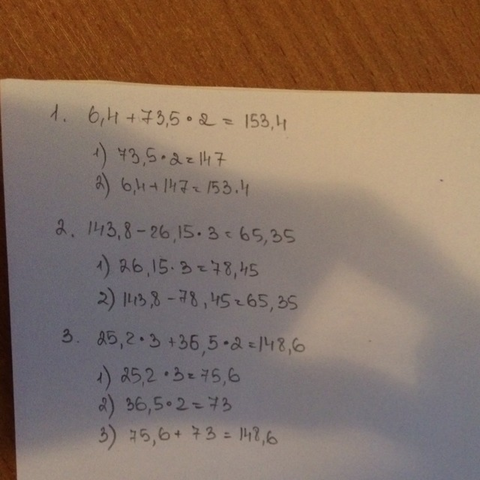 1. 6,4 + 73,5 • 2 = 153,4
1) 73,5 • 2 = 147
2) 6,4 + 147 = 153.4
2. 143,8 - 26,15 • 3 = 65,35
1) 26,15 • 3 = 78,45
2) 143,8 - 78,45 = 65,35
3. 25,2 • 3 + 36,5 • 2 = 148,6
1) 25,2 • 3 = 75,6
2) 36,5 • 2 = 73
3) 75,6 + 73 = 148,6